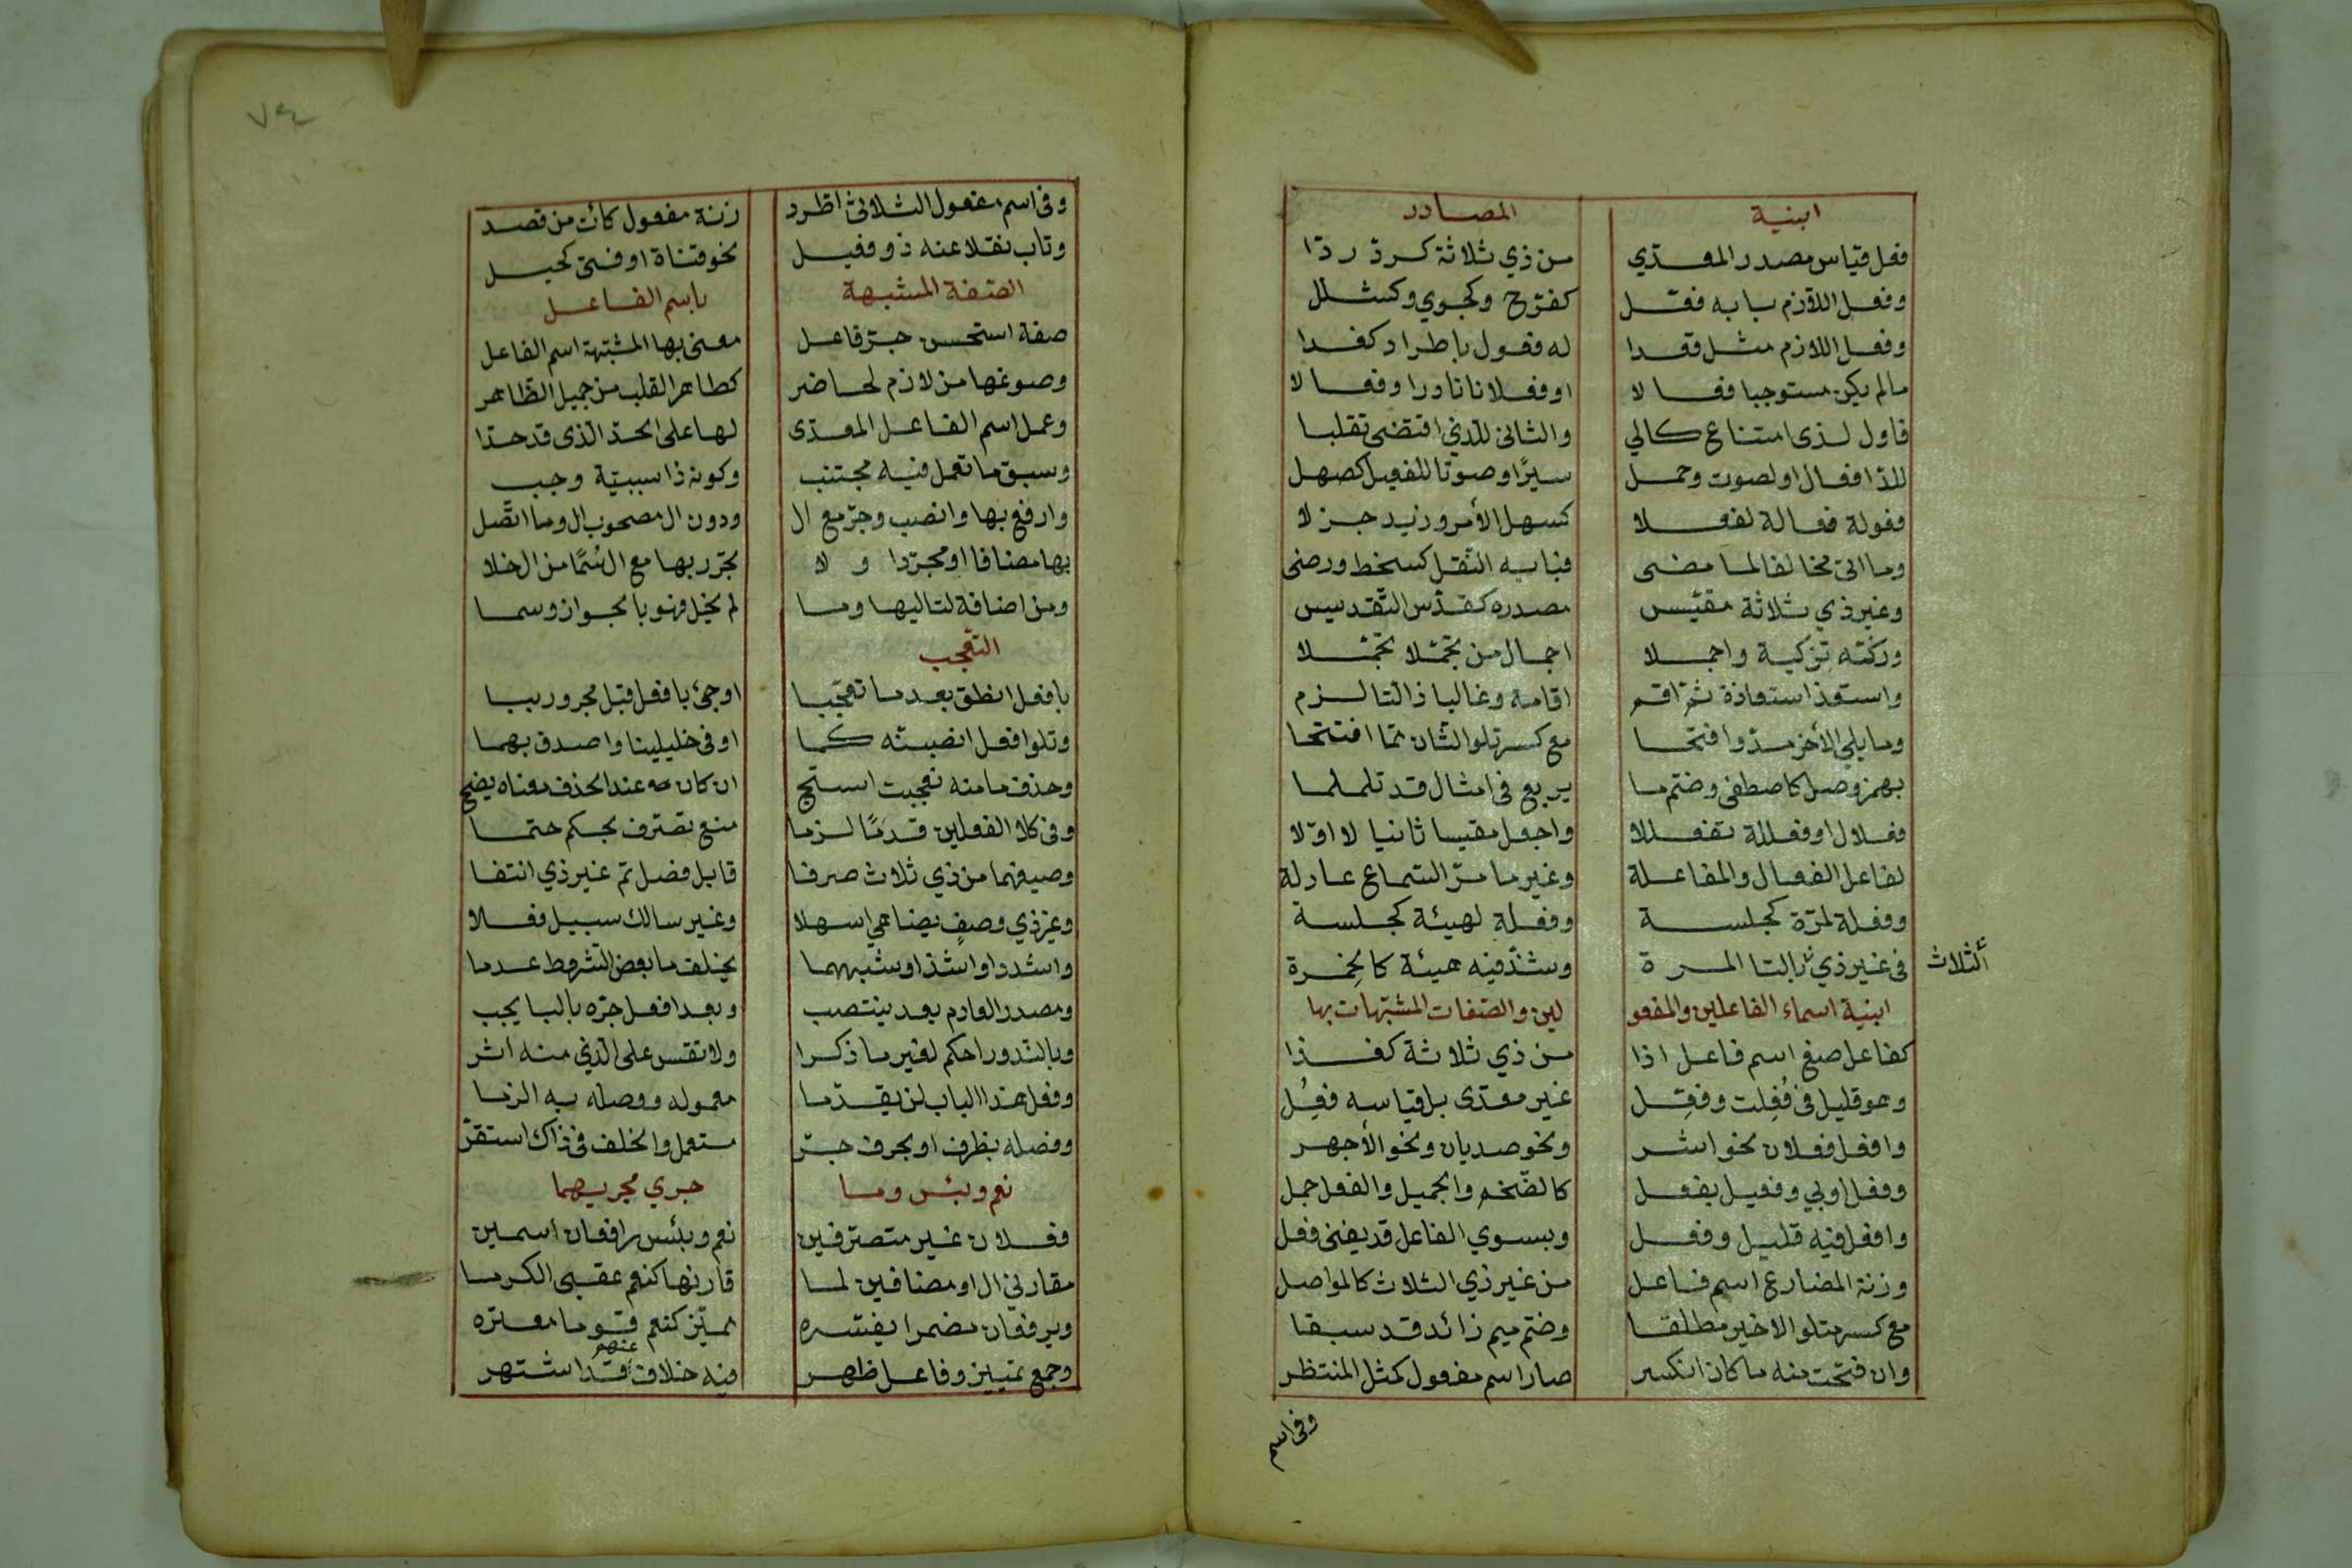 ابنية المصادر
فعل قياس مصدر المعدّي من ذي ثلاثة كردّ ردّا
وفعل اللازم بابه فعل كفرح وكجوي وكشلل
وفعل اللازم مثل قعدا له فعول باطراد كغدا
مالم يكن مستوجبا فعالا او فعلانا نادرا وفعالا
فاول لذى امتناع كالي والثانى للذي اقتضى تقلبا
للدّا فعال او لصوت وحمل سيرًا وصوتا للفعيل كصهل
فعولة فعالة لفعلا كسهل الأمر وزيد جزلا
وما اتى مخالفا لما مضى فبابه النقل كسخط ورضى
وغير ذي ثلاثة مقيّس مصدره كقدّس التّقديس
وزكّه تزكية واجملا اجمال من تجمّلا تجمّلا
واستعذ استعاذة ثمّ اقم اقامة وغالبا ذا التا لزم
وما يلي الأخر مدّ وافتحا مع كسر تلو الثان ممّا افتتحا
بهمز وصل كاصطفى وضمّ ما يربع فى امثال قد تلملما
فعلال او فعللة لفعللا واجعل مقيسا ثانيا لا اوّلا
لفاعل الفعال والمفاعلة وغير ما مرّ السّماع عادلة
وفعلة لمرّة كجلسة وفعلة لهيئة كجلسة
فى غير ذي بالتا المرة وشذّ فيه هيئة كالخِمرة
الثلاث
ابنية اسماء الفاعلين والمفعو لين والصّفات المشبّهات بها
كفاعل صغ اسم فاعل اذا من ذي ثلاثة كغذا
وهو قليل فى فُعِلت وفعِل غير معدّى بل قياسه فعِل
وافعل فعلان نحو اشر ونحو صديان ونحو الأجهر
وفعل اولي وفعيل بفعل كالضّخم والجميل والفعل جمل
وافعل فيه قليل وفعل وبسوي الفاعل قد يغنى فعل
وزنة المضارع اسم فاعل من غير ذي الثلاث كالمواصل
مع كسر متلو الاخير مطلقا وضمّ ميم زائد قد سبقا
وان فتحت منه ما كان انكسر صار اسم مفعول كمثل المنتظر
وفى اسم
وفى اسم مفعول الثلاثىّ اطّرد زنة مفعول كآت من قصد
وناب نقلا عنه ذو فعيل نحو فتاة او فتى كحيل
الصّفة المشبهة باسم الفاعل
صفة استحسن جرّ فاعل معنى بها المشبّهة اسم الفاعل
وصوغها من لازم لحاضر كطاهر القلب من جميل الظّاهر
وعمل اسم الفاعل المعدّى لها على الحدّ الّذى قد حدّا
وسبق ما تعمل فيه مجتنب وكونه ذا سببيّة وجب
وارفع بها وانصب وجرّ مع ال ودون ال مصحوب ال وما اتّصل
بها مضافا او مجرّدا ولا تجرر بها مع ال سُمًا من ال خلا
ومن اضافة لتاليها وما لم يخل فهو بالجواز وسما
التعجّب
بافعل انطق بعد ما تعجّبا او جئ بافعل قبل مجرور ببا
وتلو افعل انصبنّه كما اوفى خليلينا واصدق بهما
وحذف ما منه تعجبت استبح ان كان عند الحذف معناه يضح
وفى كلا الفعلين قدمًا لزما منع تصرّف بحكم حتما
وصيغهما من ذي ثلاث صرفا قابل فضل تمّ غير ذي انتفا
وغير ذي وصفٍ يضاهي اسهلا وغير سالك سبيل فعلا
واشدد او اشدّ او شبههما يخلف ما بعض الشروط عدما
ومصدر العادم بعد ينتصب وبعد افعل جرّه بالبا يجب
وبالندور احكم لغير ما ذكرا ولا تقس على الّذي منه اثر
وفعل هذا الباب لن يقدّما معموله ووصله به الزما
وفصله بظرف او بحرف جرّ مستعمل والخلف فى ذاك استقرّ
نعم وبئس وما جري مجريهما
فعلان غير متصرّفين نعم وبئس رافعان اسمين
مقارني ال او مضافين لما قارنها كنعم عقبى الكرما
ويرفعان مضمرا يفسّره مميّز كنعم قوما معشره
وجمع تمييز وفاعل ظهر فيه خلاف عنهم قد اشتهر